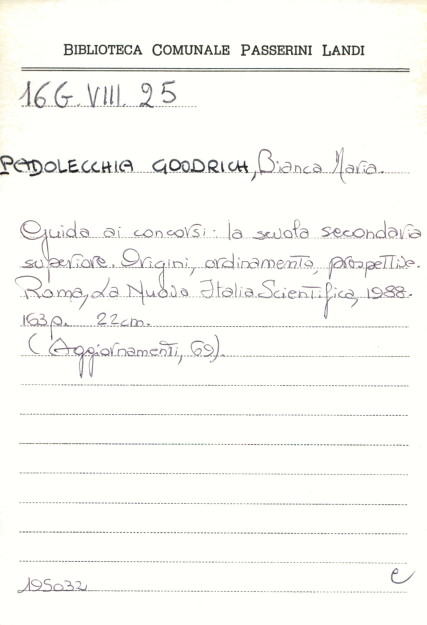 BIBLIOTECA COMUNALE PASSERINI LANDI
16 G. VIII. 25
PADOLECCHIA GOODRICH, Bianca Maria.
Guida ai concorsi: la scuola secondaria
superiore. Origini, ordinamento, prospettive.
Roma, La Nuova Italia Scientifica, 1988.
163 p. 22 cm.
(Aggiornamenti, 69).
195032
e